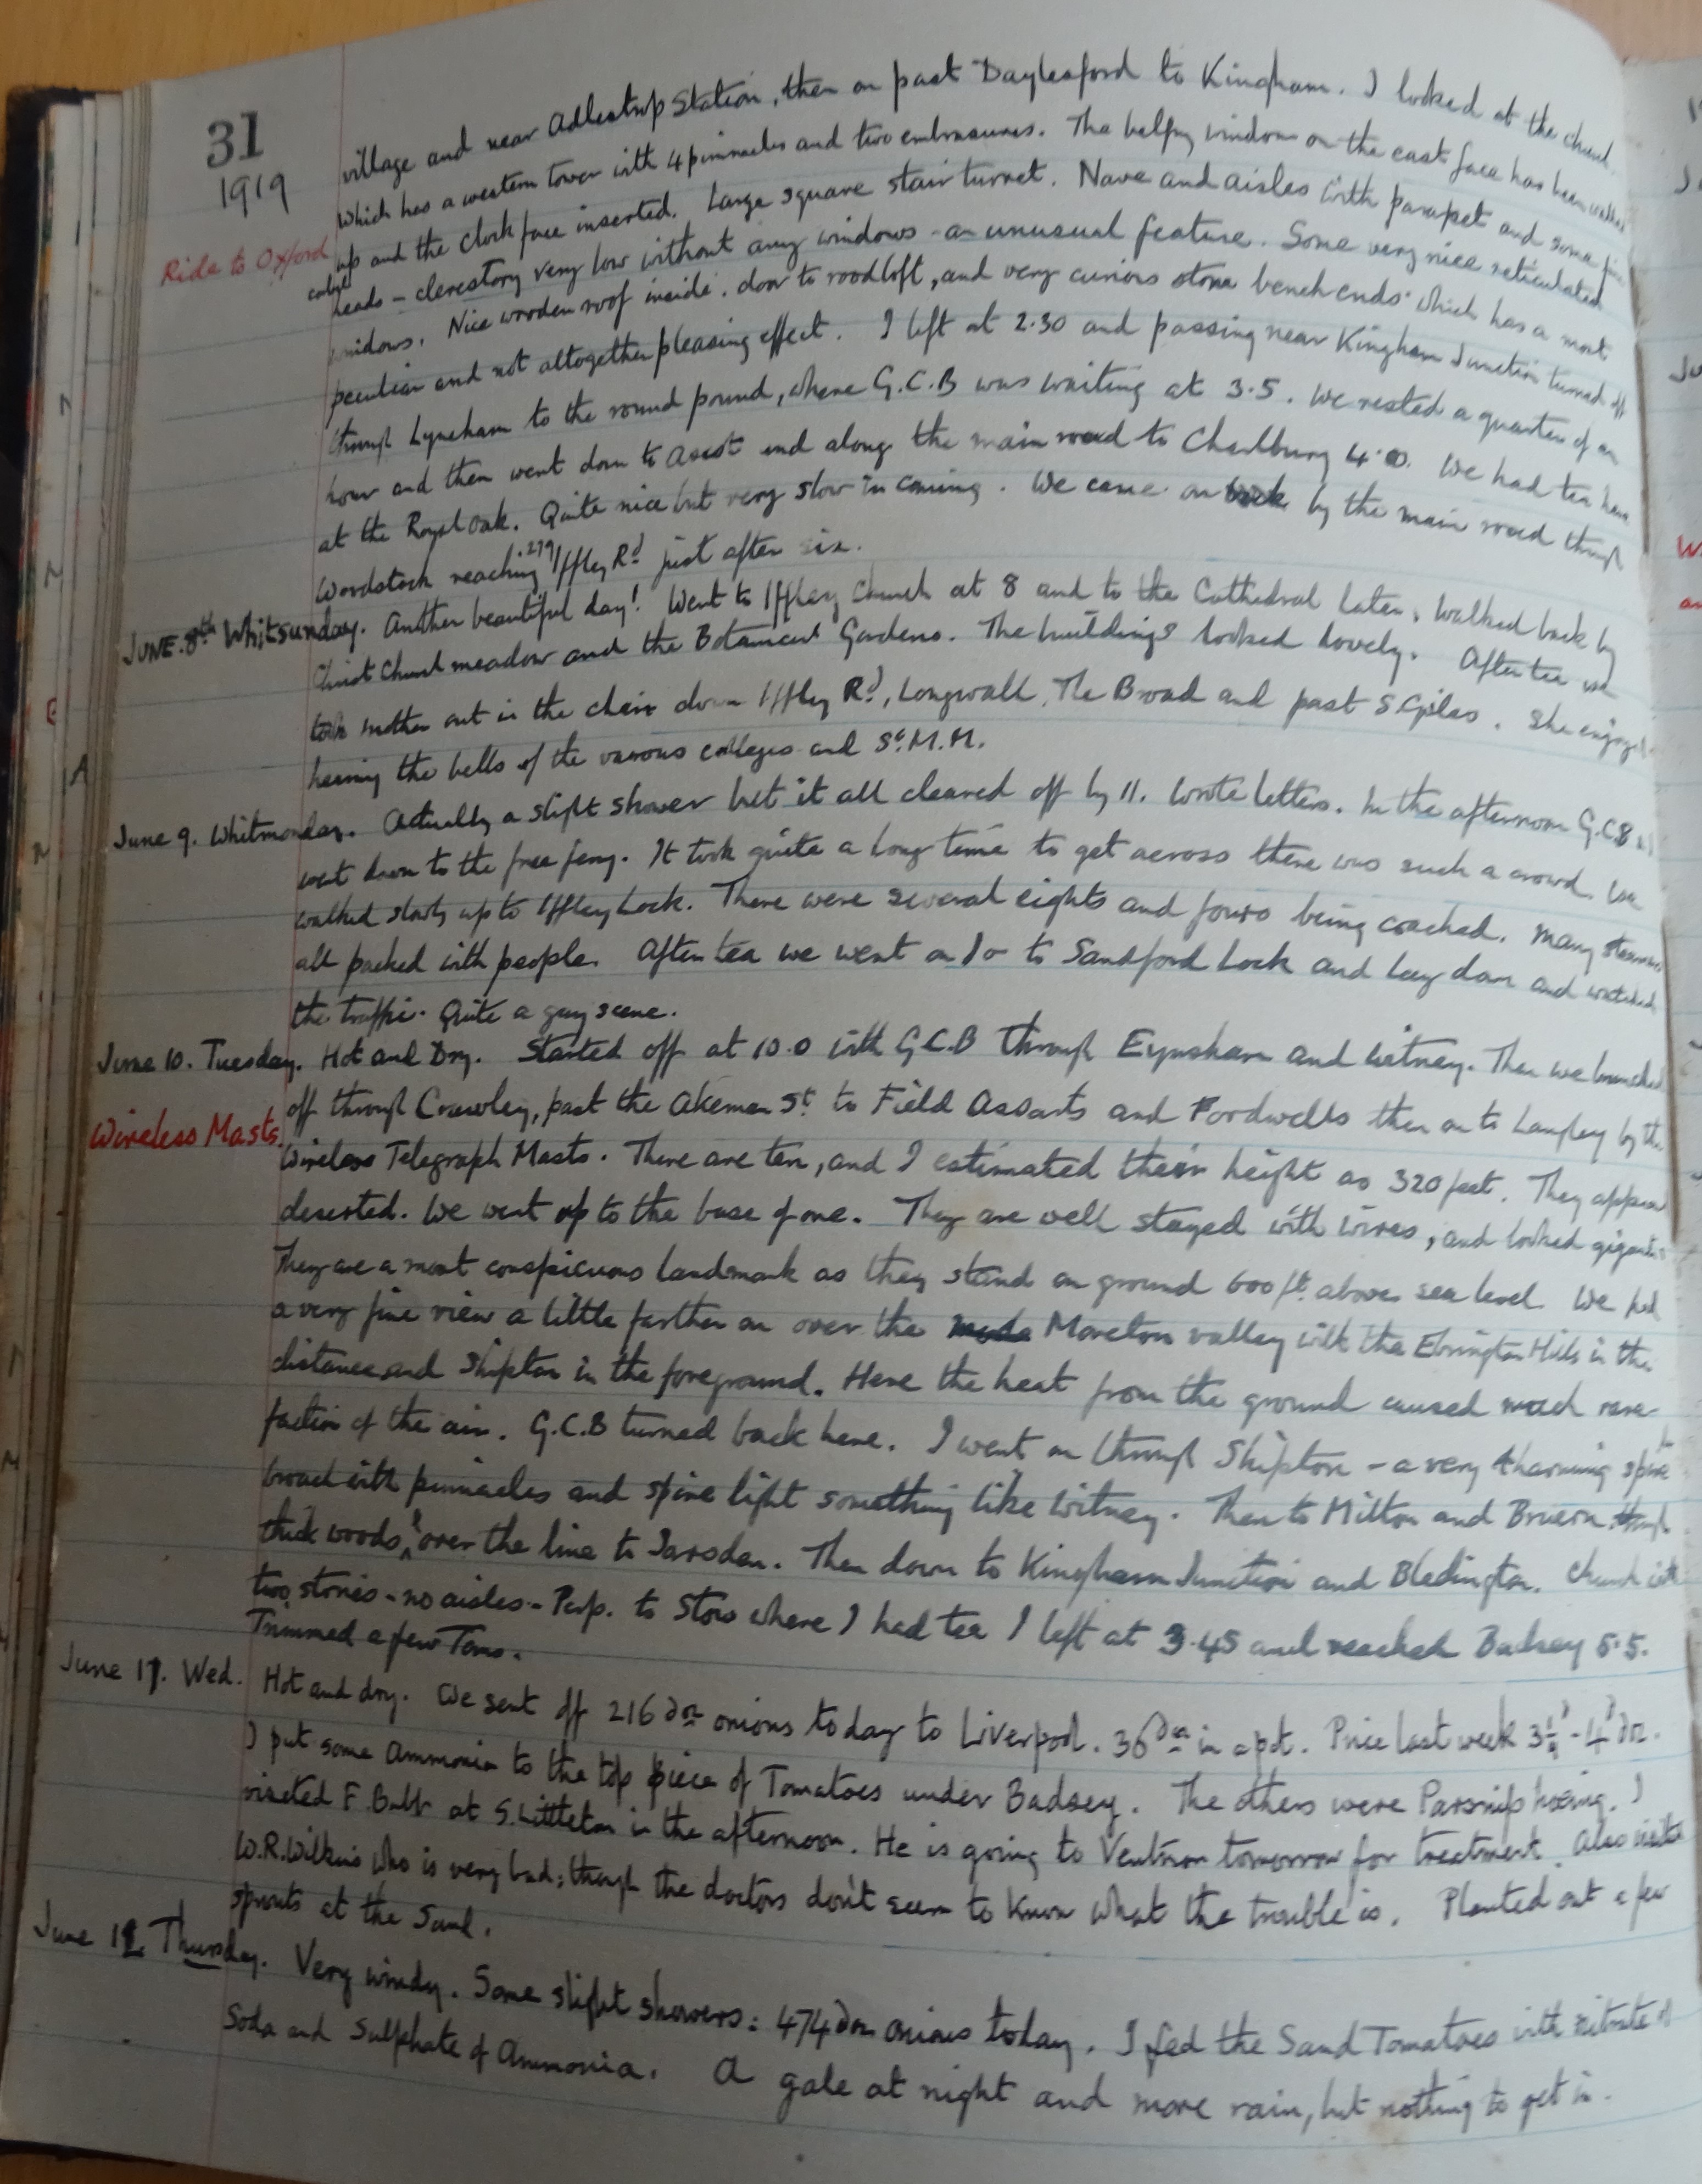 31
1919
village and near Adlestrop Station, then on past Daylesford to Kingham. I looked at the church
Ride to Oxford
which has a western tower with 4 pinnacles and two embrasures. The belfry window on the east face has been walled
up and the clock face inserted. Large square stair turret. Nave and aisles with parapet and some fine
corbel heads - clerestory very low without any windows - an unusual feature. Some very nice reticulated
windows. Nice wooden roof inside. door to roodloft, and very curious stone bench ends which has a most
peculiar and not altogether pleasing effect. I left at 2.30 and passing near Kingham Junction turned off
through Lyneham to the round pound, where G.C.B was waiting at 3.5. We rested a quarter of an
hour and then went down to Ascot and along the main road to Charlbury 4.0. We had tea here
at the Royal Oak. Quite nice but very slow in coming. We came on by the main road through
Woodstock reaching 279 Iffley Rd just after six.
JUNE 8th Whitsunday. Another beautiful day! Went to Iffley Church at 8 and to the Cathedral later, walked back by
Christ Church meadow and the Botanical Gardens. The buildings looked lovely. After tea we
took mother out in the chair down Iffley Rd, Longwall, The Broad and past S Giles. She enjoyed
hearing the bells of the various colleges and St. M.M.
June 9. Whitmonday. Actually a slight shower but it all cleared off by 11. Wrote letters. In the afternoon G.C.B & I
went down to the free ferry. It took quite a long time to get across there was such a crowd. We
walked slowly up to Iffley Lock. There were several eights and fours being coached. Many steamers
all packed with people. After tea we went on to Sandford Lock and lay down and watched
the traffic. Quite a gay scene.
June 10. Tuesday. Hot and Dry. Started off at 10.0 with G.C.B through Eynsham and Witney. Then we branched
off through Crawley, past the Akeman St. to Field Assarts and Fordwells then on to Langley by the
Wireless Masts.
Wireless Telegraph Masts. There are ten, and I estimated their height as 320 feet. They appear
deserted. We went up to the base of one. They are well stayed with wires, and looked gigantic.
They are a most conspicuous landmark as they stand on ground 600 ft. above sea level. We had
a very fine view a little farther on over the Moreton valley with the Ebrington Hills in the
distance and Shipton in the foreground. Here the heat from the ground caused much rare-
faction of the air. G.C.B turned back here. I went on through Shipton - a very charming spire
broach with pinnacles and spire light something like Witney. Then to Milton and Bruern through
thick woods, & over the line to Sarsden. Then down to Kingham Junction and Bledington. Church with
two stories - no aisles - Perp. to Stow where I had tea I left at 3.45 and reached Badsey 5.5.
Trimmed a few Toms.
June 11. Wed. Hot and dry. We sent off 216 doz onions today to Liverpool. 36 doz in a pot. Price last week 3½d - 4d doz.
I put some Ammonia to the top piece of Tomatoes under Badsey. The others were Parsnip hoeing. I
visited F. Butt at S. Littleton in the afternoon. He is going to Ventnor tomorrow for treatment. Also visited
W.R. Wilkins who is very bad; though the doctors don't seem to know what the trouble is. Planted out a few
sprouts at the Sand.
June 12 Thursday. Very windy. Some slight showers: 474 doz onions today. I fed the Sand Tomatoes with nitrate of
Soda and Sulphate of Ammonia. A gale at night and more rain, but nothing to get in.